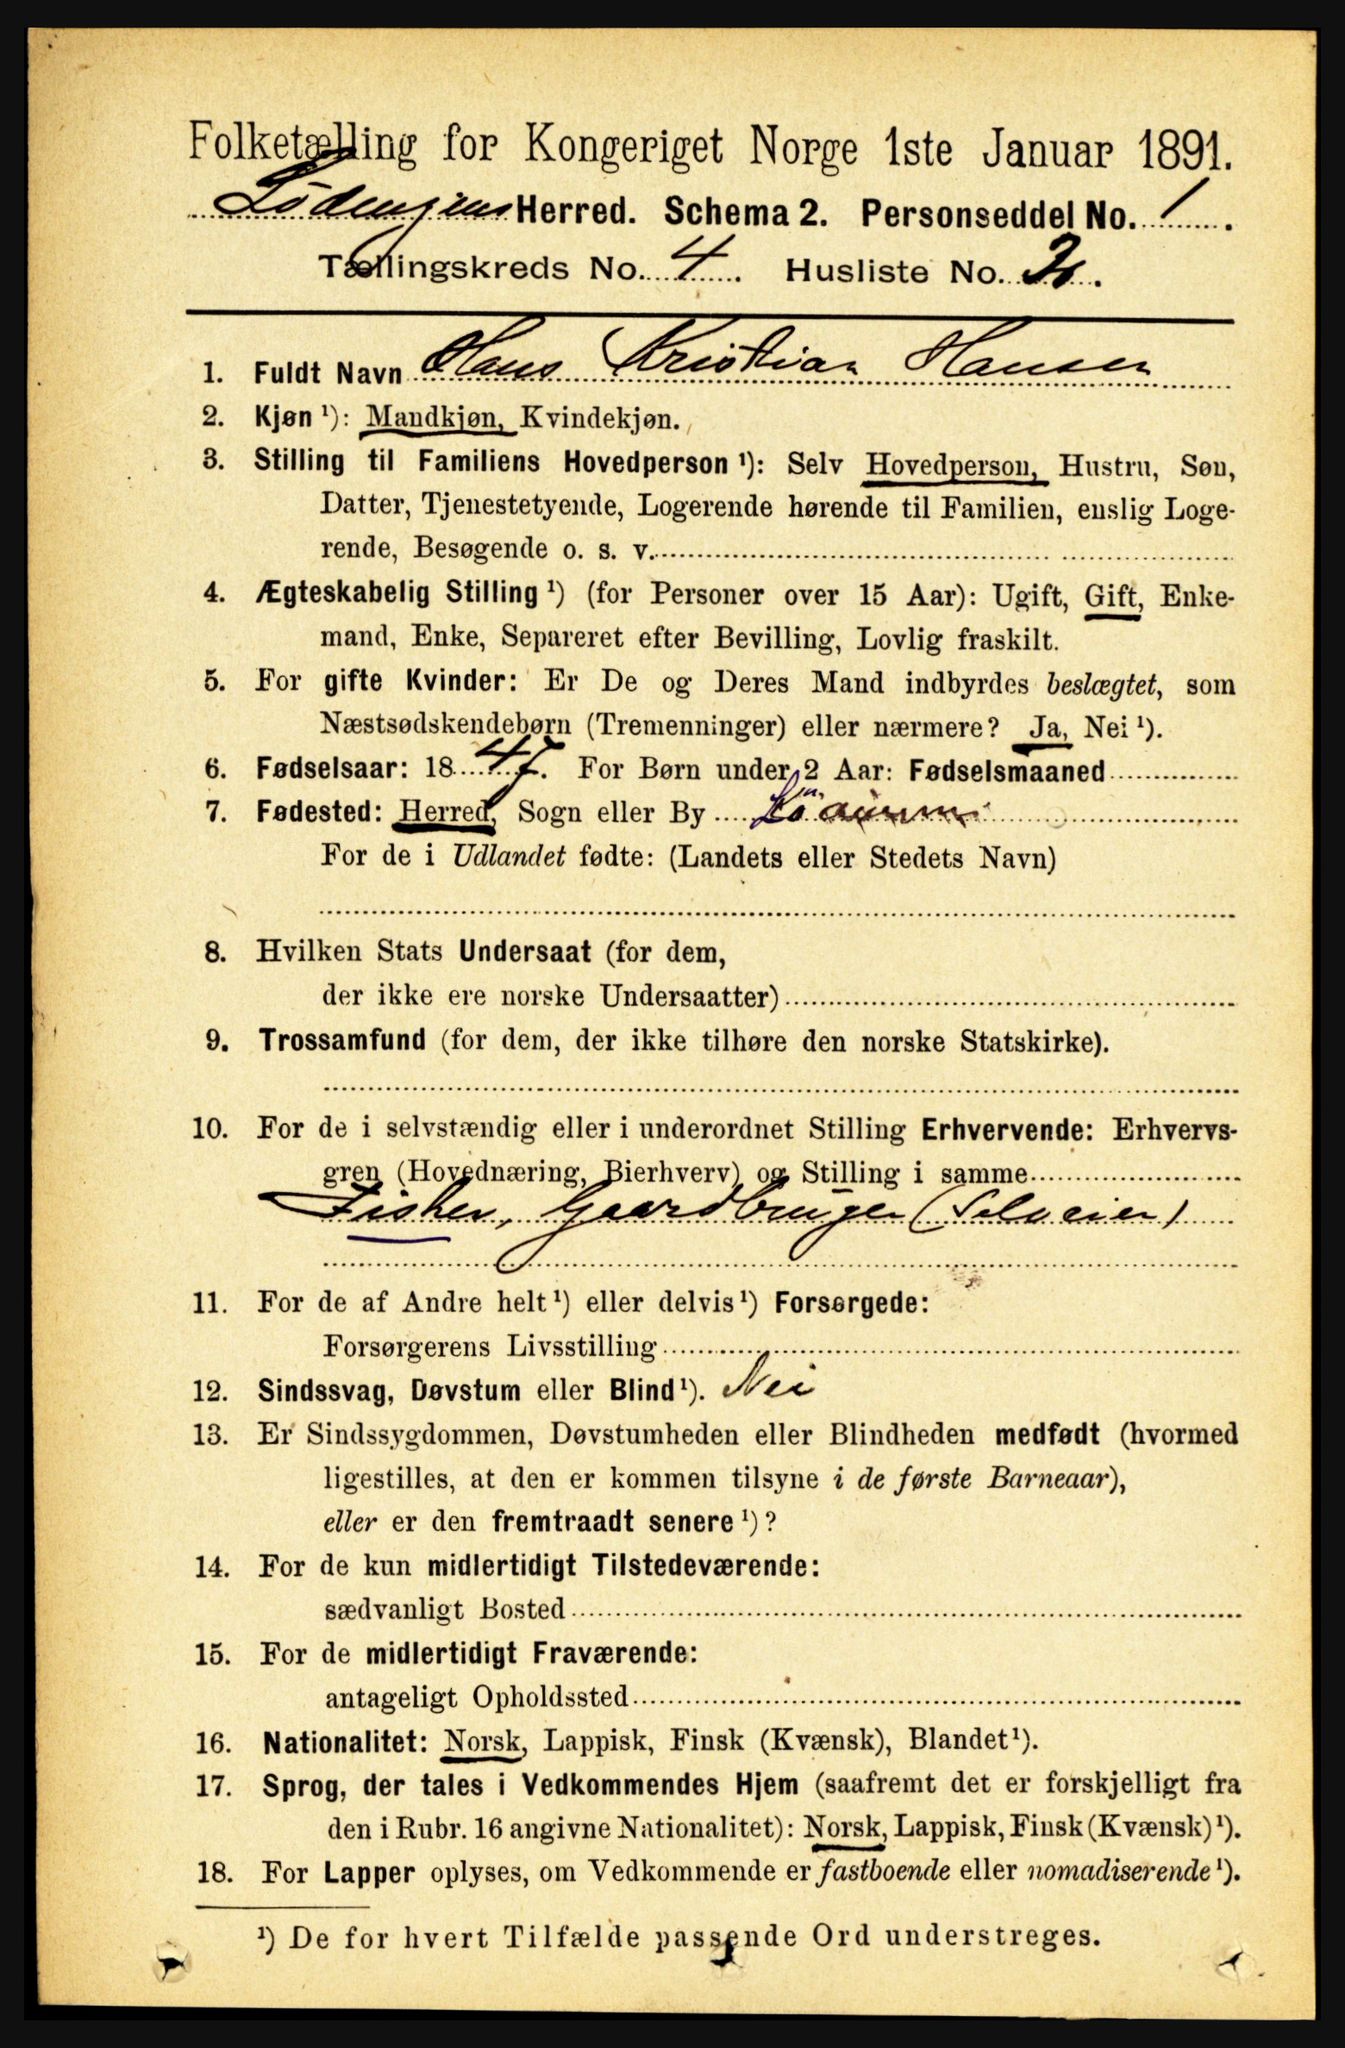 Folketælling for Kongeriget Norge 1ste Januar 1891.
Lødingens Herred. Schema 2. Personseddel No. 1.
Tællingskreds No. 4. Husliste No.
1. Fuldt Navn Hans Kristian Hansen
2. Kjøn ¹): Mandkjøn, Kvindekjøn.
3. Stilling til Familiens Hovedperson ¹): Selv Hovedperson, Hustru, Søn,
Datter, Tjenestetyende, Logerende hørende til Familien, enslig Loge-
rende, Besøgende o. s. v.
4. Ægteskabelig Stilling ¹) (for Personer over 15 Aar): Ugift, Gift, Enke-
mand, Enke, Separeret efter Bevilling, Lovlig fraskilt.
5. For gifte Kvinder: Er De og Deres Mand indbyrdes beslægtet, som
Næstsødskendebørn (Tremenninger) eller nærmere? Ja, Nei ¹).
6. Fødselsaar: 1847. For Børn under 2 Aar: Fødselsmaaned
7. Fødested: Herred, Sogn eller By
For de i Udlandet fødte: (Landets eller Stedets Navn)
8. Hvilken Stats Undersaat (for dem,
der ikke ere norske Undersaatter)
9. Trossamfund (for dem, der ikke tilhøre den norske Statskirke).
10. For de i selvstændig eller i underordnet Stilling Erhvervende: Erhvervs-
gren (Hovednæring, Bierhverv) og Stilling i samme
Fisker, Gaardbruger (Selveier)
11. For de af Andre helt ¹) eller delvis ¹) Forsørgede:
Forsørgerens Livsstilling
12. Sindssvag, Døvstum eller Blind ¹). Nei
13. Er Sindssygdommen, Døvstumheden eller Blindheden medfødt (hvormed
ligestilles, at den er kommen tilsyne i de første Barneaar),
eller er den fremtraadt senere ¹)?
14. For de kun midlertidigt Tilstedeværende:
sædvanligt Bosted
15. For de midlertidigt Fraværende:
antageligt Opholdssted
16. Nationalitet: Norsk, Lappisk, Finsk (Kvænsk), Blandet ¹).
17. Sprog, der tales i Vedkommendes Hjem (saafremt det er forskjelligt fra
den i Rubr. 16 angivne Nationalitet): Norsk, Lappisk, Finsk (Kvænsk) ¹).
18. For Lapper oplyses, om Vedkommende er fastboende eller nomadiserende ¹).
¹) De for hvert Tilfælde passende Ord understreges.